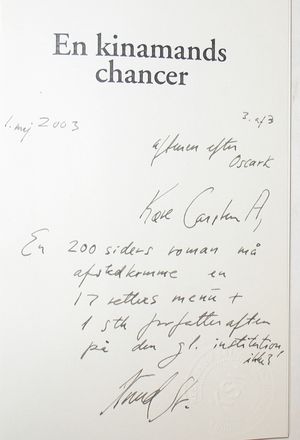 En kinamands
chancer
1. maj 2003
3. af 3
aftenen efter
Oscark
Kære Carsten A,
En 200 siders roman må
afstedkomme en
17 retters menu +
1 stk forfatteraften
på den gl. institution,
ikk?